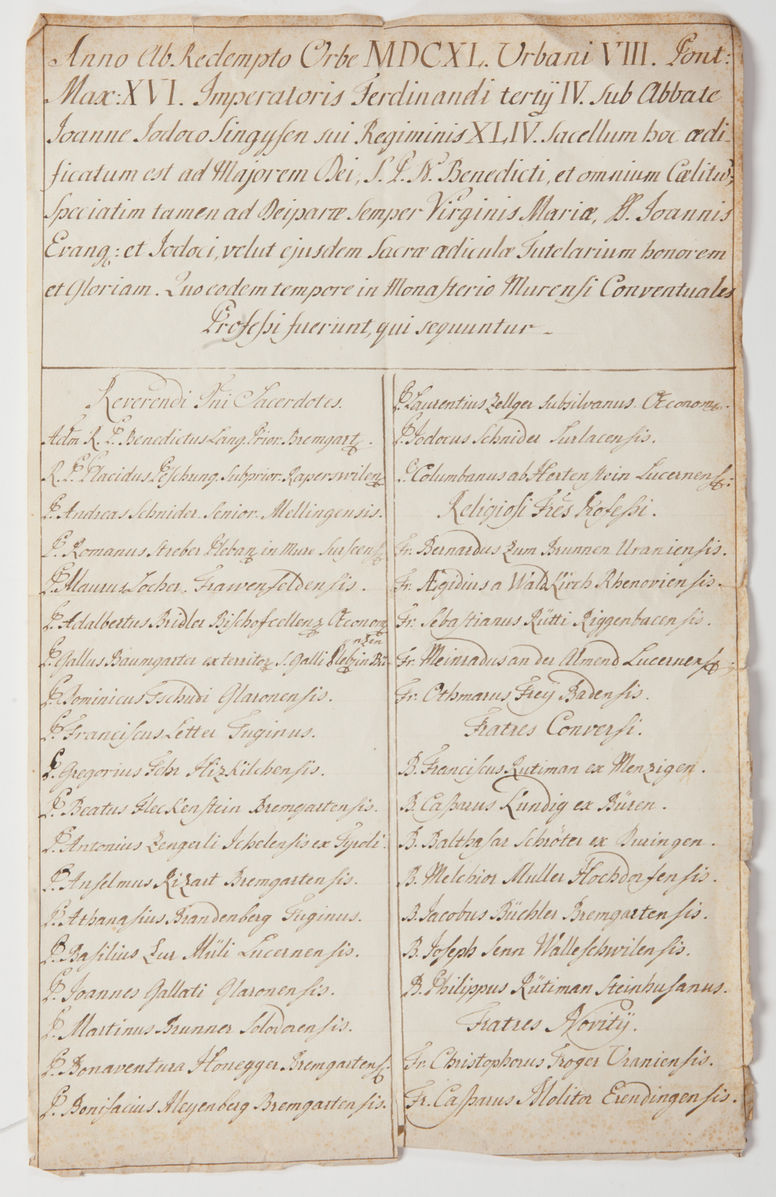 Anno Ab Redempto Orbe MDCXL. Urbani VIII. Pont:
Max: XVI. Imperatoris Ferdinandi tertÿ IV. sub Abbate
Joanne Jodoco Singÿsen sui Regiminis XLIV. Sacellum hoc ædi-
ficatum est ad Majorem Dei, S. P. N. Benedicti, et omnium Cælitu͂,
Speciatim tamen ad Deiparæ semper Virginis Mariæ, SS. Joannis
Evang: et Jodoci, velut ejusdem Sacræ ædiculæ Tutelarium honorem
et Gloriam. Quo eodem tempore in Monasterio Murensi Conventuales
Professi fuerunt, qui sequuntur.
Reverendi Dni Sacerdotes.
Adm R. P. Benedictus Lang Prior Bremgart.
R. P. Placidus Peschung Subprior Raperswilen
P. Andreas Schnider Senior Mellingensis.
P. Romanus Streber Pleban in Mure Surseens
P. Maurus Socher Frawenfeldensis.
P. Adalbertus Bridler Bischofcellenz Œconom
P. Gallus Baumgarter ex territor S. Galli Pleb in Bü-
nzen
P. Dominicus Tschudi Glaronensis.
P. Franciscus Letter Tuginus.
P. Gregorius Fehr Hizkilchensis.
P. Beatus Fleckenstein Bremgartensis.
P. Antonius Zengerli Ichelensis ex Tyroli.
P. Anselmus Rizart Bremgartensis.
P. Athanasius Brandenberg Tuginus.
P. Basilius Zur Müli Lucernensis.
P. Joannes Gallati Glaronensis.
P. Martinus Brunner Solodorensis.
P. Bonaventura Honegger Bremgartens.
P. Bonifacius Meyenberg Bremgartensis.
P. Laurentius Zellger Subsilvanus Œconom.
P. Jodocus Schnider Surlacensis.
P. Columbanus ab Hertenstein Lucernens.
Religiosi Frēs Professi.
Fr. Bernardus Zum Brunnen Uraniensis.
Fr. Ægidius a Waldkirch Rhenoviensis.
Fr. Sebastianus Rütti Riggenbacensis.
Fr. Meinradus an der Almend Lucernens
Fr. Othmarus Frey Badensis.
Fratres Conversi.
B. Franciscus Rutiman ex Menzigen.
B. Casparus Kundig ex Büren.
B. Balthasar Schröter ex Buringen.
B. Melchior Muller Hochdorfensis.
B. Jacobus Büchler Bremgartensis.
B. Joseph Senn Walleschwilensis.
B. Philippus Rütiman Steinhusanus.
Fratres Novitÿ.
Fr. Christophorus Troger Uraniensis.
Fr. Casparus Molitor Erendingensis.